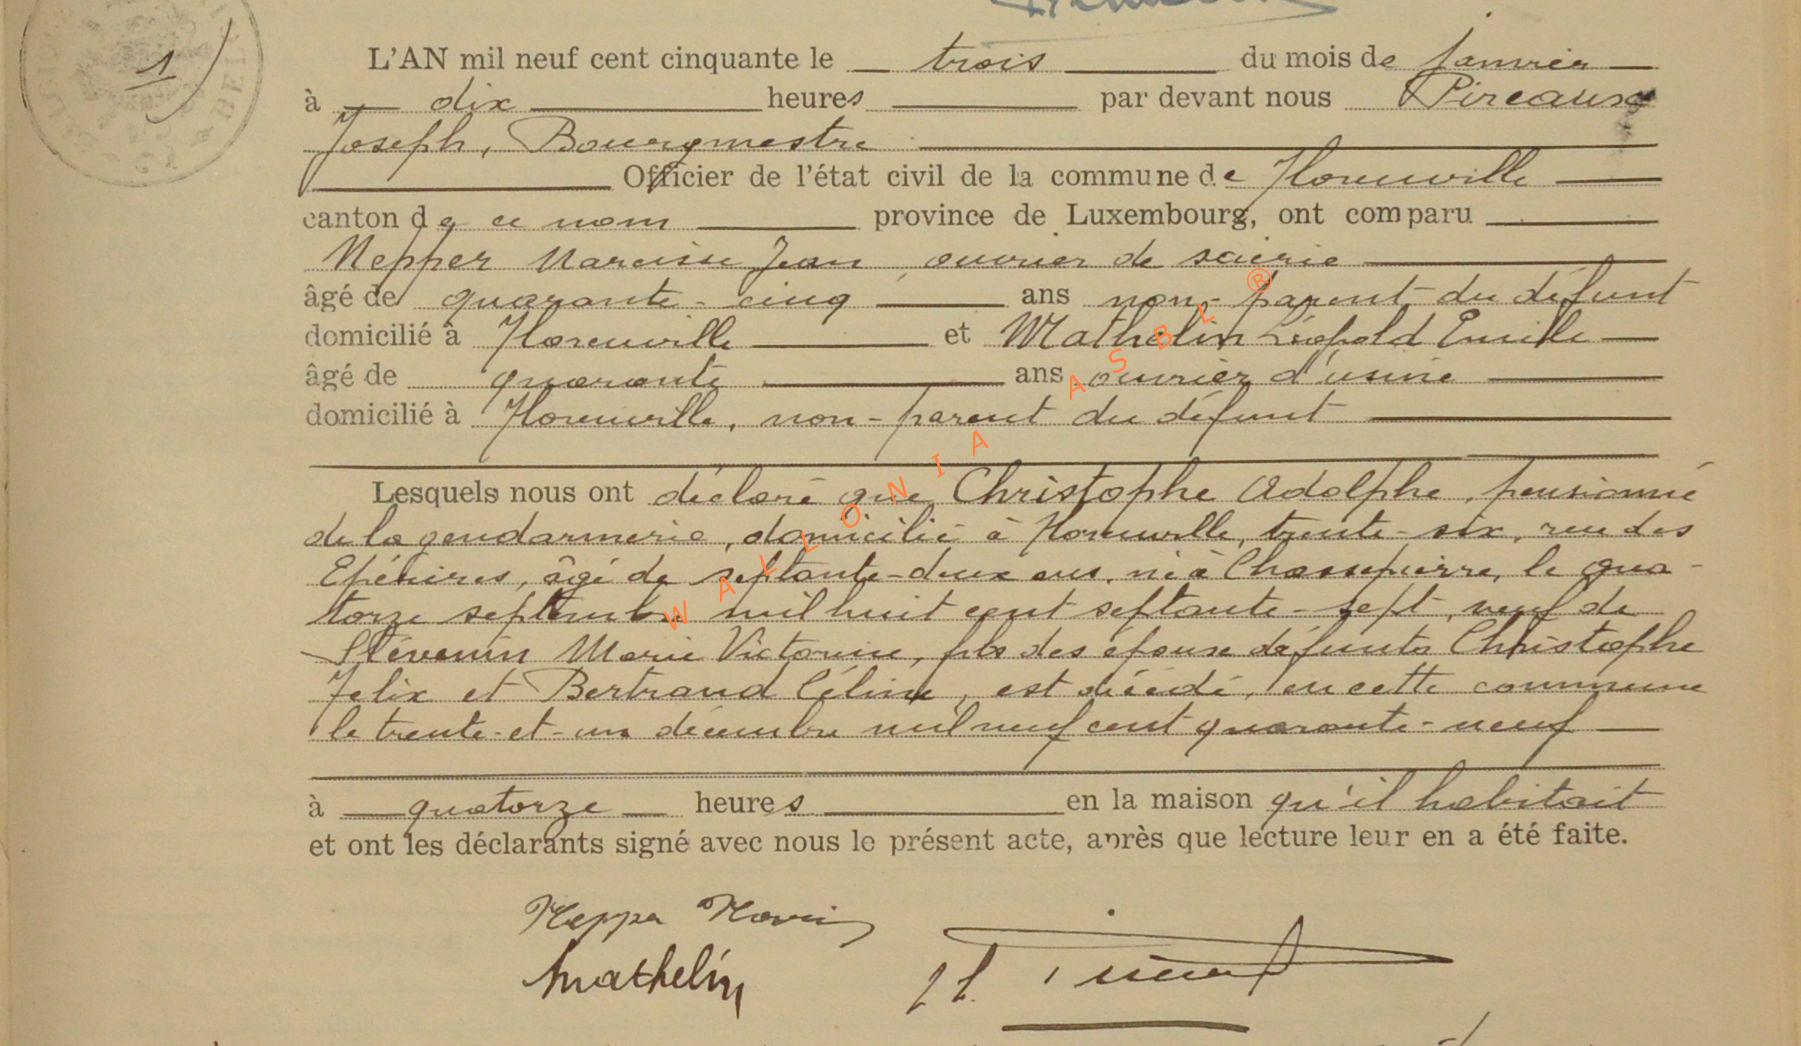 1)
L'AN mil neuf cent cinquante le trois du mois de janvier
à dix heures par devant nous Pireaux
Joseph, Bourgmestre
Officier de l'état civil de la commune de Florenville
canton de ce nom province de Luxembourg, ont comparu
Nepper Narcisse Jean, ouvrier de scierie
âgé de quarante-cinq ans non-parent du défunt
domicilié à Florenville et Mathelin Léopold Emile
âgé de quarante ans ouvrier d'usine
domicilié à Florenville, non-parent du défunt
Lesquels nous ont déclaré que Christophe Adolphe, pensionné
de la gendarmerie, domicilié à Florenville, trente-six, rue des
Epénires, âgé de septante-deux ans, né à Chassepierre, le qua-
torze septembre mil huit cent septante-sept, veuf de
Stévenin Marie Victorine, fils des époux défunts Christophe
Felix et Bertrand Céline, est décédé, en cette commune
le trente-et-un décembre mil neuf cent quarante-neuf
à quatorze heures en la maison qu'il habitait
et ont les déclarants signé avec nous le présent acte, après que lecture leur en a été faite.
Nepper
Mathelin
WALLONIA ASBL ®